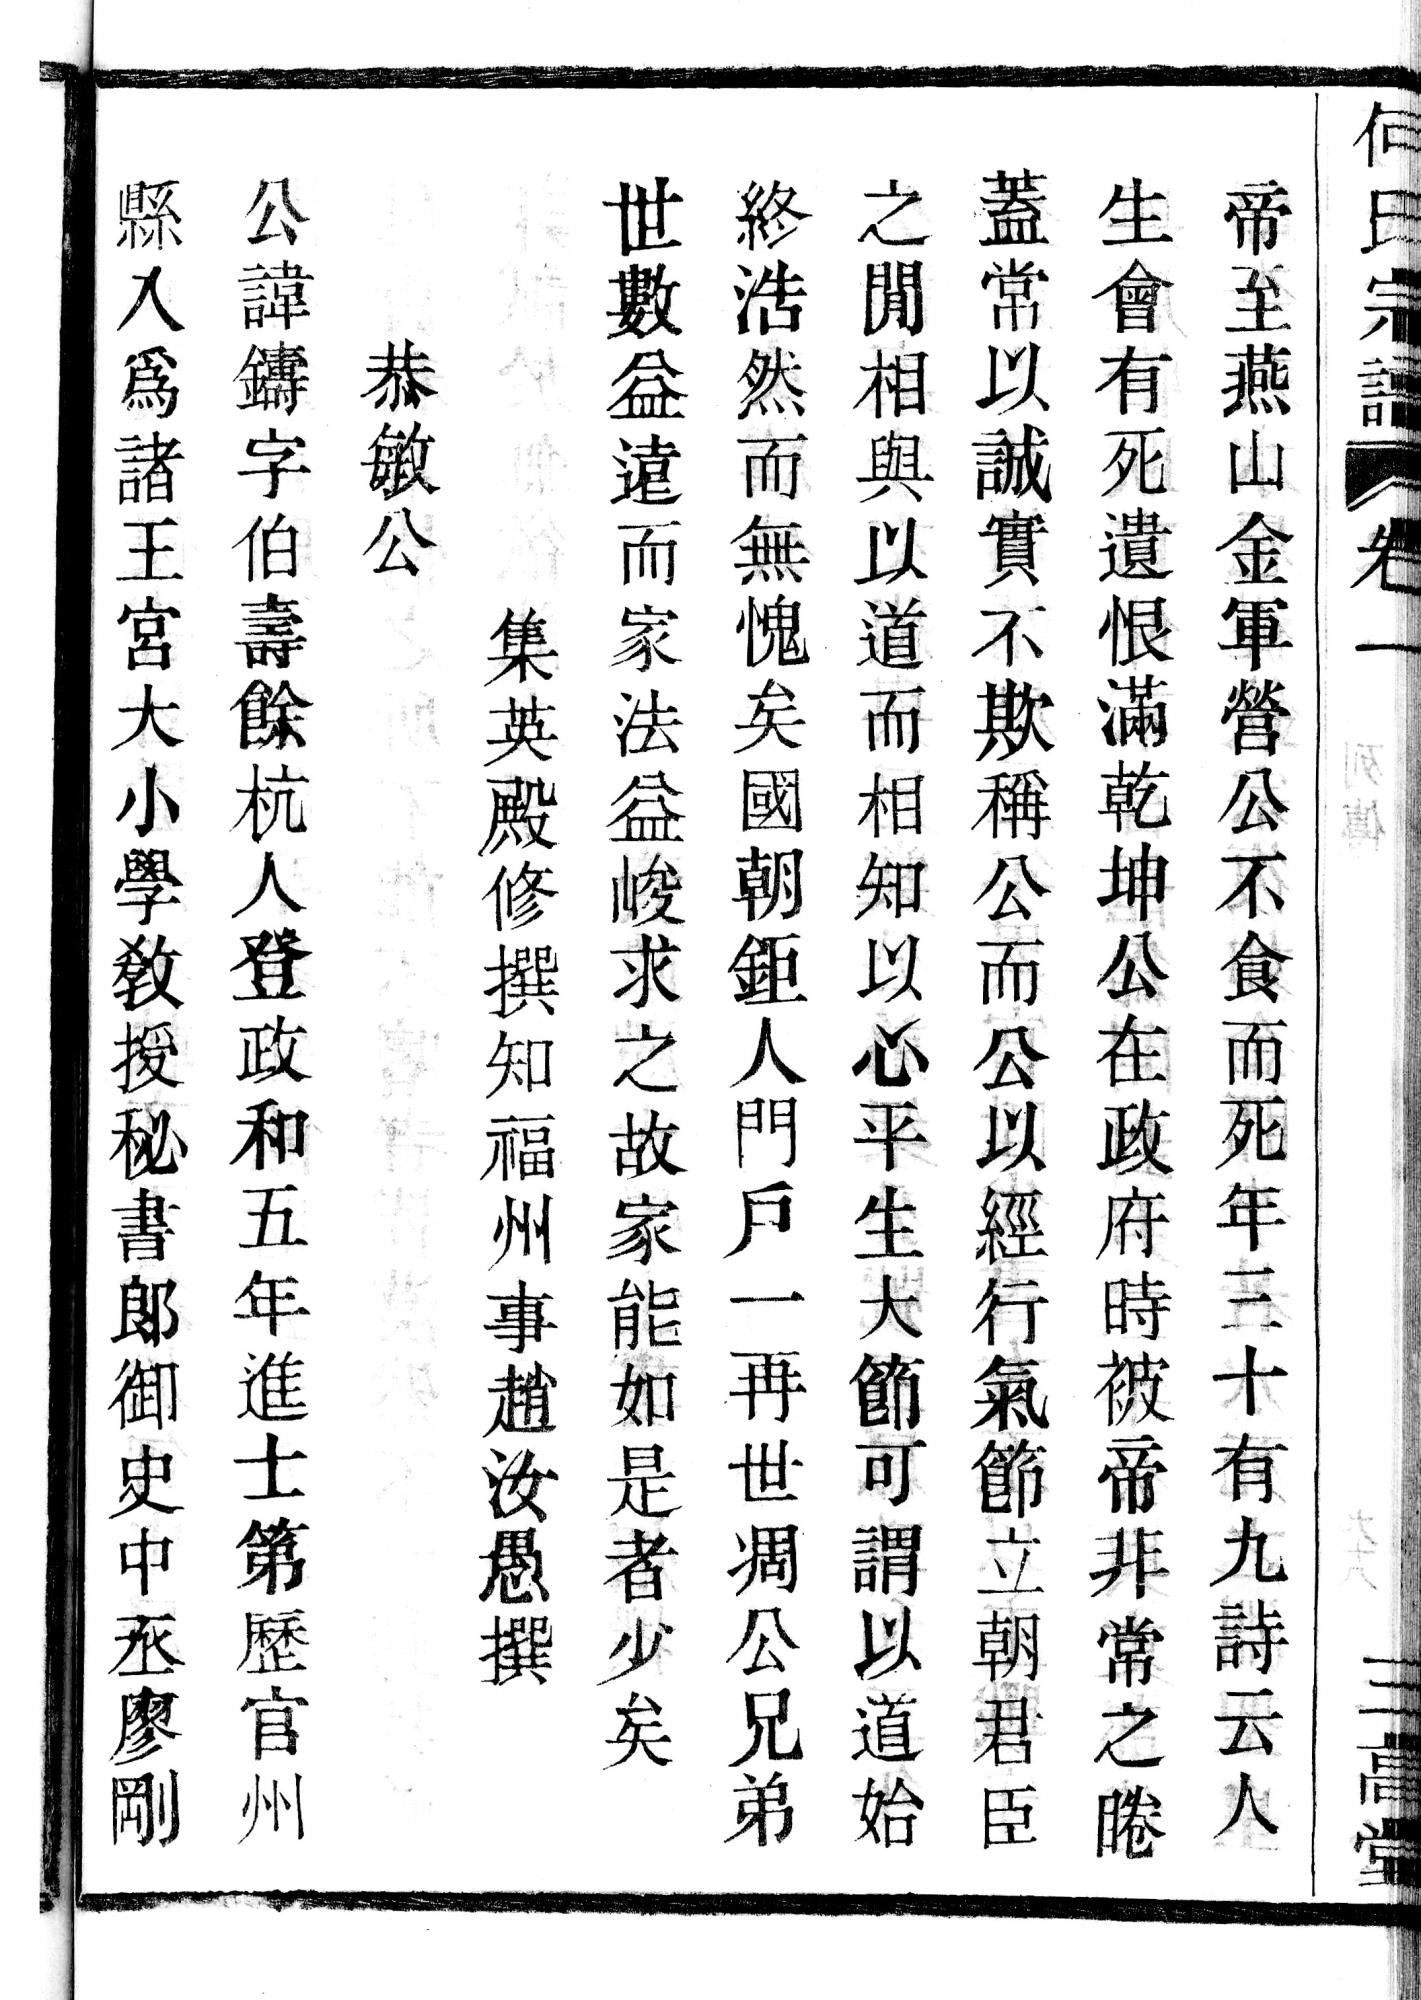 何氏宗譜 卷一 列傳 三高堂
帝至燕山金軍營公不食而死年三十有九詩云人
生會有死遺恨滿乾坤公在政府時被帝非常之睠
蓋常以誠實不欺稱公而公以經行氣節立朝君臣
之閒相與以道而相知以心平生大節可謂以道始
終浩然而無愧矣國朝鉅人門戶一再世凋公兄弟
世數益遠而家法益峻求之故家能如是者少矣
集英殿修撰知福州事趙汝愚撰
恭敏公
公諱鑄字伯壽餘杭人登政和五年進士第歷官州
縣入爲諸王宮大小學敎授秘書郎御史中丞廖剛